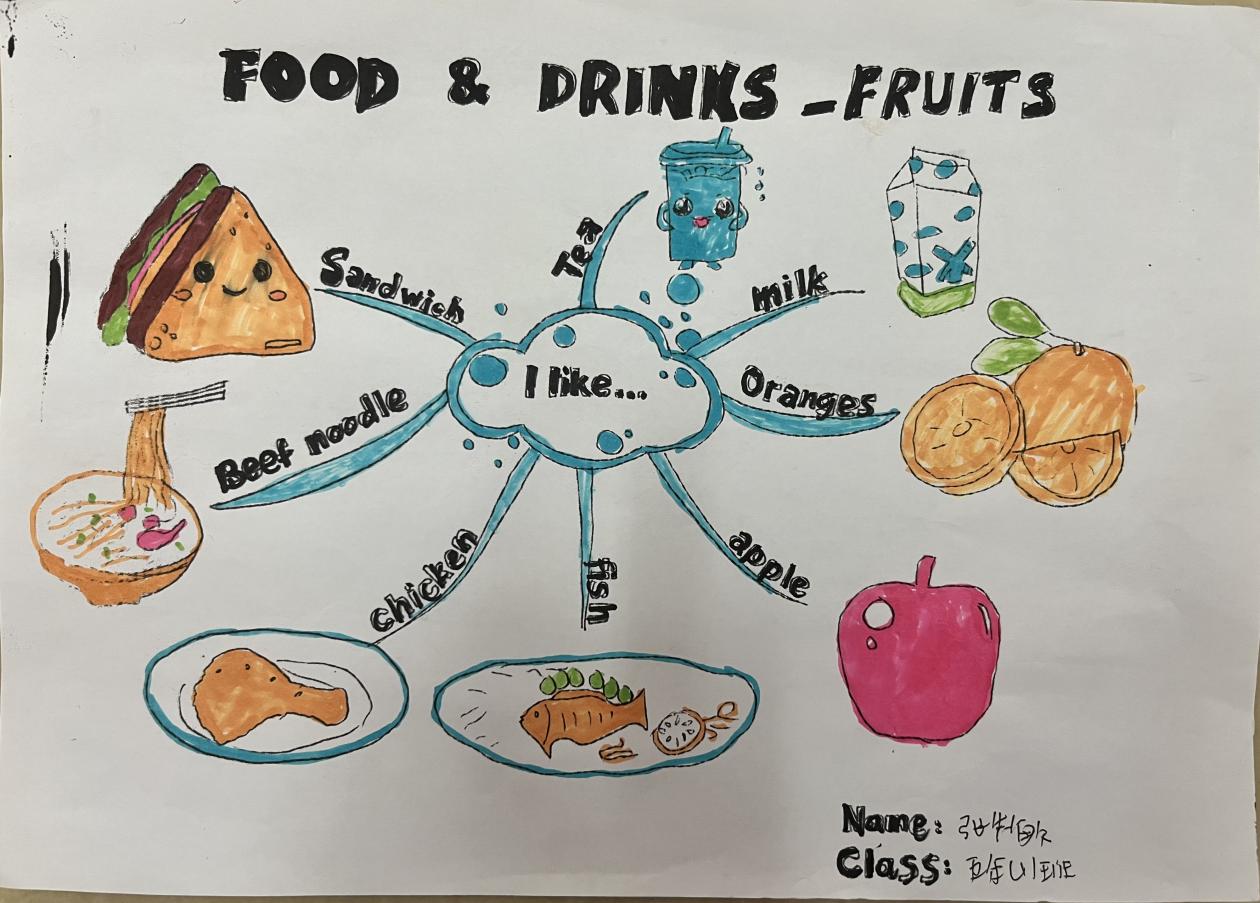 FOOD & DRINKS -FRUITS
Tea
Sandwich
milk
I like...
Oranges
Beef noodle
chicken
fish
apple
Name:
Class: